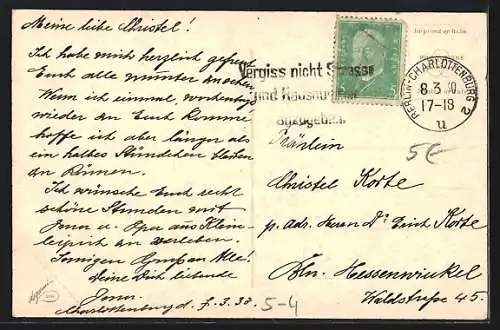 Meine liebe Christel!
Ich habe mich herzlich gefreut
Euch alle munter
Wenn ich einmal
wieder an Euch komme
hoffe ich aber länger als
ein halbes Stündchen bleiben
zu können.
Ich wünsche Euch recht
schöne Stunden mit
Oma u. Opa aus Klein-
leipisch zu verleben.
Innigen Gruß an Alle!
Deine Dich liebende
Oma.
Charlottenburg d. 7.3.30
5-4
Vergiss nicht Strasse
und Hausnummer
anzugeben
BERLIN-CHARLOTTENBURG 2
8.3.30
17-18
u
5
5€
Fräulein
Christel Korte
p. adr. Herrn Dr Erich Korte
Bln. Hessenwinkel
Waldstraße 45.